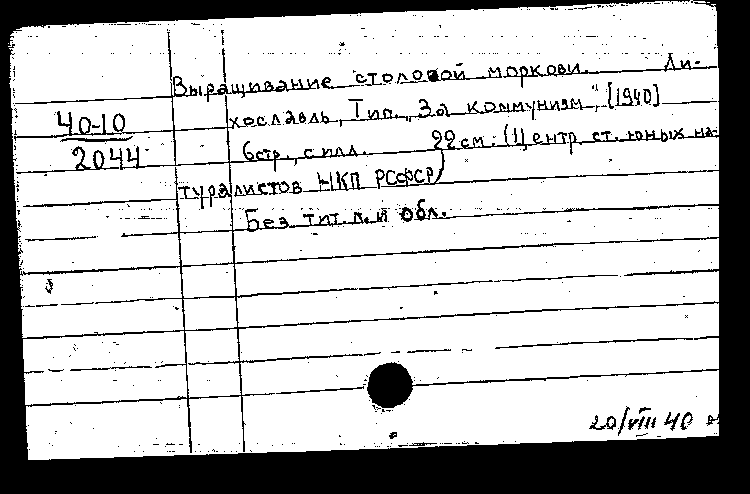 Выращивание столовой моркови. Ли-
хославль, Тип. „За коммунизм", [1940]
40-10
2044
6 стр., с илл. 22 см. (Центр. ст. юных на-
туралистов НКП РСФСР)
Без тит. л. и обл.
20/VIII 40